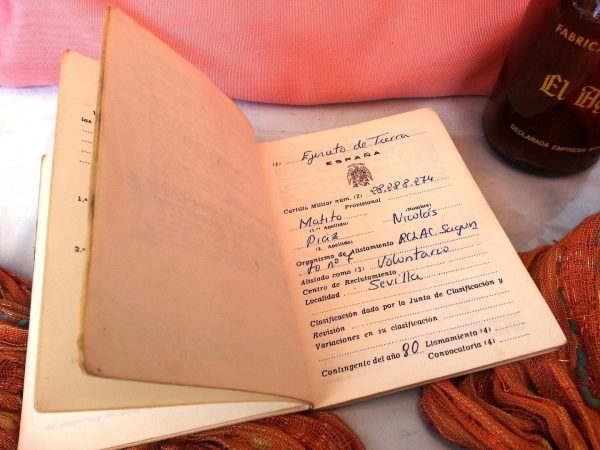 (1) Ejército de Tierra
ESPAÑA
Cartilla Militar núm. (2) 28.288.274
Provisional
Matito Nicolás
(1.er Apellido) (Nombre)
Díaz
(2. Apellido)
Organismo de Alistamiento RCLAC. Sagun
to nº 7
Alistado como (3) Voluntario
Centro de Reclutamiento
Localidad Sevilla
Clasificación dada por la Junta de Clasificación y
Revisión
Variaciones en su clasificación
Contingente del año 80 Llamamiento (4)
Convocatoria (4)
las
1.ª
2.ª
FABRICA
El
DECLARADA EMPRESA